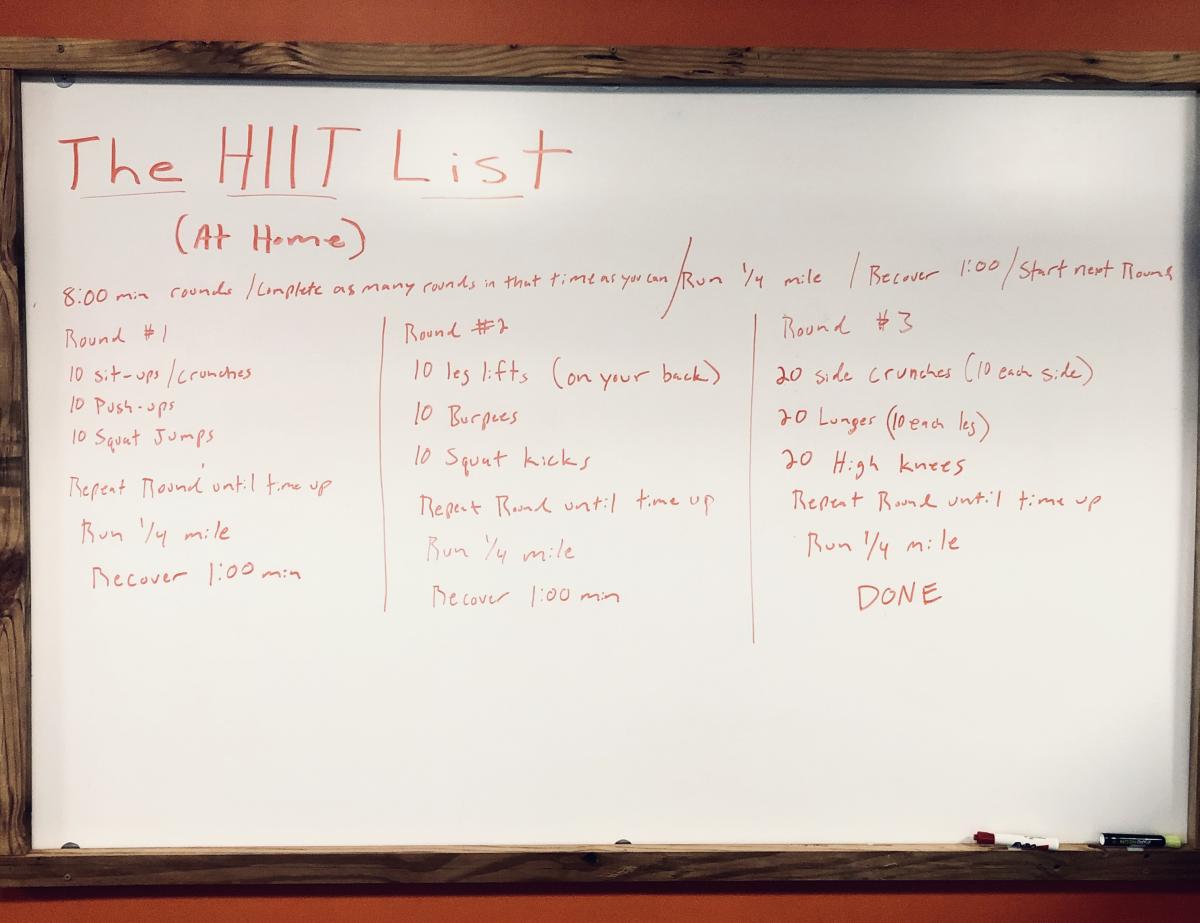 The HIIT List
(At Home)
8:00 min rounds / Complete as many rounds in that time as you can / Run 1/4 mile / Recover 1:00 / Start next Round
Round #1
10 sit-ups / crunches
10 Push-ups
10 Squat Jumps
Repeat Round until time up
Run 1/4 mile
Recover 1:00 min
Round #2
10 leg lifts (on your back)
10 Burpees
10 Squat kicks
Repeat Round until time up
Run 1/4 mile
Recover 1:00 min
Round #3
20 side crunches (10 each side)
20 Lunges (10 each leg)
20 High knees
Repeat Round until time up
Run 1/4 mile
DONE